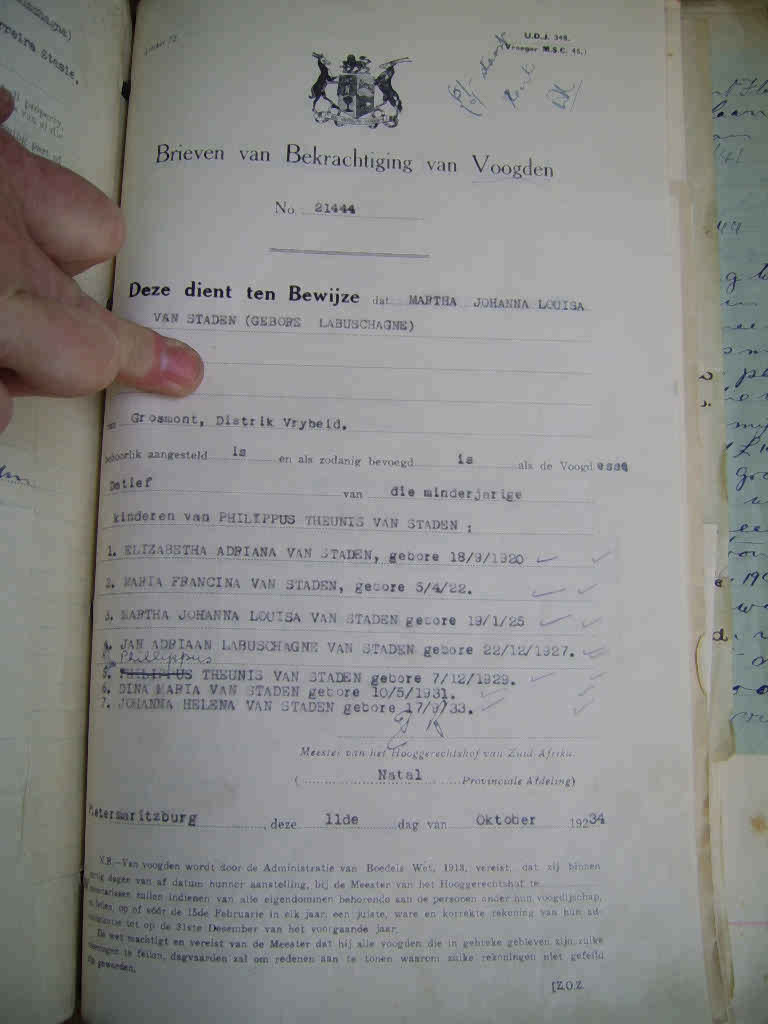 U.D.J. 348.
(Vroeger M.S.C. 45.)
Brieven van Bekrachtiging van Voogden
No. 21444
Deze dient ten Bewijze dat MARTHA JOHANNA LOUISA
VAN STADEN (GEBORE LABUSCHAGNE)
Grosmont, Distrik Vryheid.
behoorlijk aangesteld is en als zodanig bevoegd is als de Voogdesse
Datief van die minderjarige
kinderen van PHILIPPUS THEUNIS VAN STADEN ;
1. ELIZABETHA ADRIANA VAN STADEN, gebore 18/9/1920
2. MARIA FRANCINA VAN STADEN, gebore 5/4/22.
3. MARTHA JOHANNA LOUISA VAN STADEN gebore 19/1/25
4. JAN ADRIAAN LABUSCHAGNE VAN STADEN gebore 22/12/1927.
Phillippus
5. PHILIPPUS THEUNIS VAN STADEN gebore 7/12/1929.
6. DINA MARIA VAN STADEN gebore 10/5/1931.
7. JOHANNA HELENA VAN STADEN gebore 17/9/33.
Meester van het Hooggerechtshof van Zuid Afrika.
( Natal Provinciale Afdeling)
Pietermaritzburg, deze 11de dag van Oktober 19234
N.B.—Van voogden wordt door de Administratie van Boedels Wet, 1913, vereist, dat zij binnen
dertig dagen van af datum hunner aanstelling, bij de Meester van het Hooggerechtshof te
inventarissen zullen indienen van alle eigendommen behorende aan de personen onder hun voogdijschap,
en laten, op of vóór de 15de Februarie in elk jaar, een juiste, ware en korrekte rekening van hun
tot op de 31ste Desember van het voorgaande jaar.
De wet machtigt en vereist van de Meester dat hij alle voogden die in gebreke gebleven zijn, zulke
rekeningen te feilen, dagvaarden zal om redenen aan te tonen waarom zulke rekeningen niet gefeild
geworden.
[Z.O.Z.